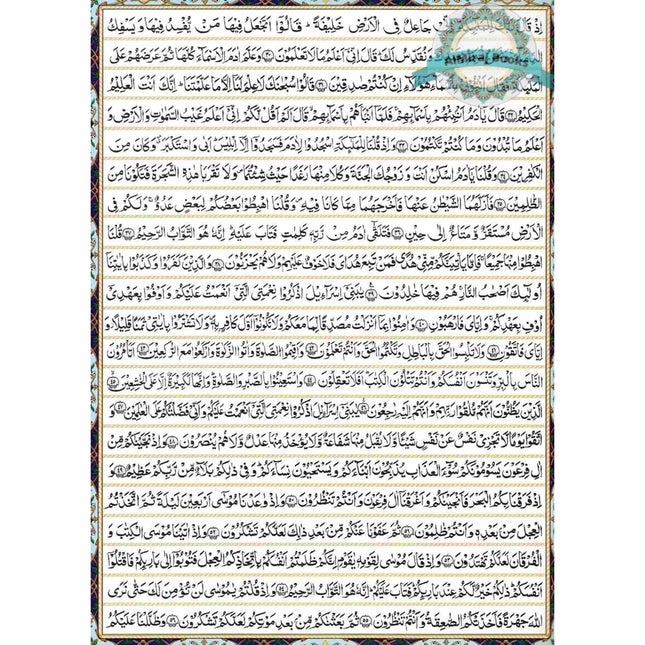 اذ قال جاعل فى الارض خليفة قالوا اتجعل فيها من يفسد فيها و يسفك
ونقدس لك قال انى اعلم مالا تعلمون وعلم ادم الاسماء كلها ثم عرضهم على
الملئكة فقال هؤلاء ان كنتم صدقين قالوا سبحنك لا علم لنا الا ما علمتنا انك انت العليم
الحكيم قال يادم انبئهم باسمائهم فلما انباهم باسمائهم قال الم اقل لكم انى اعلم غيب السموت والارض و
اعلم ما تبدون وما كنتم تكتمون واذ قلنا للملئكة اسجدوا لادم فسجدوا الا ابليس ابى واستكبر وكان من
الكفرين وقلنا يادم اسكن انت و زوجك الجنة وكلا منها رغدا حيث شئتما ولا تقربا هذه الشجرة فتكونا من
الظلمين فازلهما الشيطن عنها فاخرجهما مما كانا فيه وقلنا اهبطوا بعضكم لبعض عدو ولكم فى
الارض مستقر و متاع الى حين فتلقى ادم من ربه كلمت فتاب عليه انه هو التواب الرحيم قلنا
اهبطوا منها جميعا فاما ياتينكم منى هدى فمن تبع هداى فلا خوف عليهم ولا هم يحزنون والذين كفروا وكذبوا بايتنا
اولئك اصحب النار هم فيها خلدون يبنى اسراءيل اذكروا نعمتى التى انعمت عليكم واوفوا بعهدى
اوف بعهدكم واياى فارهبون وامنوا بما انزلت مصدقا لما معكم ولا تكونوا اول كافر به ولا تشتروا بايتى ثمنا قليلا و
اياى فاتقون ولا تلبسوا الحق بالباطل وتكتموا الحق وانتم تعلمون واقيموا الصلوة واتوا الزكوة واركعوا مع الركعين اتامرون
الناس بالبر وتنسون انفسكم وانتم تتلون الكتب افلا تعقلون واستعينوا بالصبر والصلوة وانها لكبيرة الا على الخشعين
الذين يظنون انهم ملقوا ربهم وانهم اليه رجعون يبنى اسراءيل اذكروا نعمتى التى انعمت عليكم وانى فضلتكم على العلمين و
اتقوا يوما لا تجزى نفس عن نفس شيئا ولا يقبل منها شفاعة ولا يؤخذ منها عدل ولا هم ينصرون واذ نجينكم من
ال فرعون يسومونكم سوء العذاب يذبحون ابناءكم و يستحيون نساءكم و فى ذلكم بلاء من ربكم عظيم و
اذ فرقنا بكم البحر فانجينكم واغرقنا ال فرعون وانتم تنظرون واذ وعدنا موسى اربعين ليلة ثم اتخذتم
العجل من بعده وانتم ظلمون ثم عفونا عنكم من بعد ذلك لعلكم تشكرون واذ اتينا موسى الكتب و
الفرقان لعلكم تهتدون واذ قال موسى لقومه يقوم انكم ظلمتم انفسكم باتخاذكم العجل فتوبوا الى بارئكم فاقتلوا
انفسكم ذلكم خير لكم عند بارئكم فتاب عليكم انه هو التواب الرحيم واذ قلتم يموسى لن نؤمن لك حتى نرى
الله جهرة فاخذتكم الصعقة وانتم تنظرون ثم بعثنكم من بعد موتكم لعلكم تشكرون وظللنا عليكم